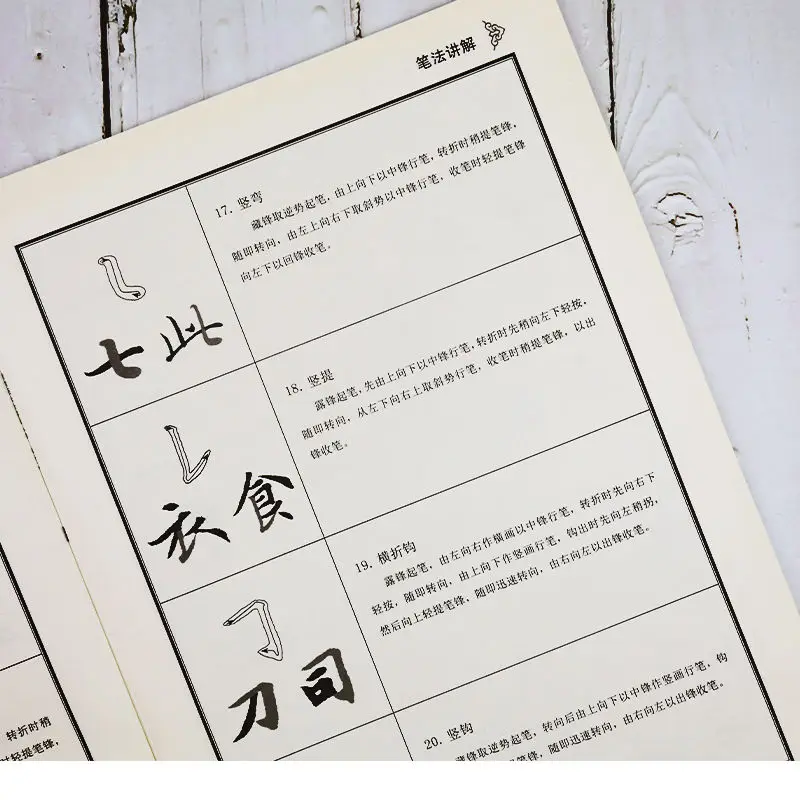 笔法讲解
17. 竖弯
藏锋取逆势起笔，由上向下以中锋行笔，转折时稍提笔锋，
随即转向，由左上向右下取斜势以中锋行笔，收笔时轻提笔锋
向左下以回锋收笔。
七此
18. 竖提
露锋起笔，先由上向下以中锋行笔，转折时先稍向左下轻按，
随即转向，从左下向右上取斜势行笔，收笔时稍提笔锋，以出
锋收笔。
衣食
19. 横折钩
露锋起笔，由左向右作横画以中锋行笔，转折时先向右下
轻按，随即转向，由上向下作竖画行笔，钩出时先向左稍拐，
然后向上轻提笔锋，随即迅速转向，由右向左以出锋收笔。
刀司
20. 竖钩
藏锋取逆势起笔，转向后由上向下以中锋作竖画行笔，钩
提笔锋，随即迅速转向，由右向左以出锋收笔。
转折时稍
时轻提笔锋，